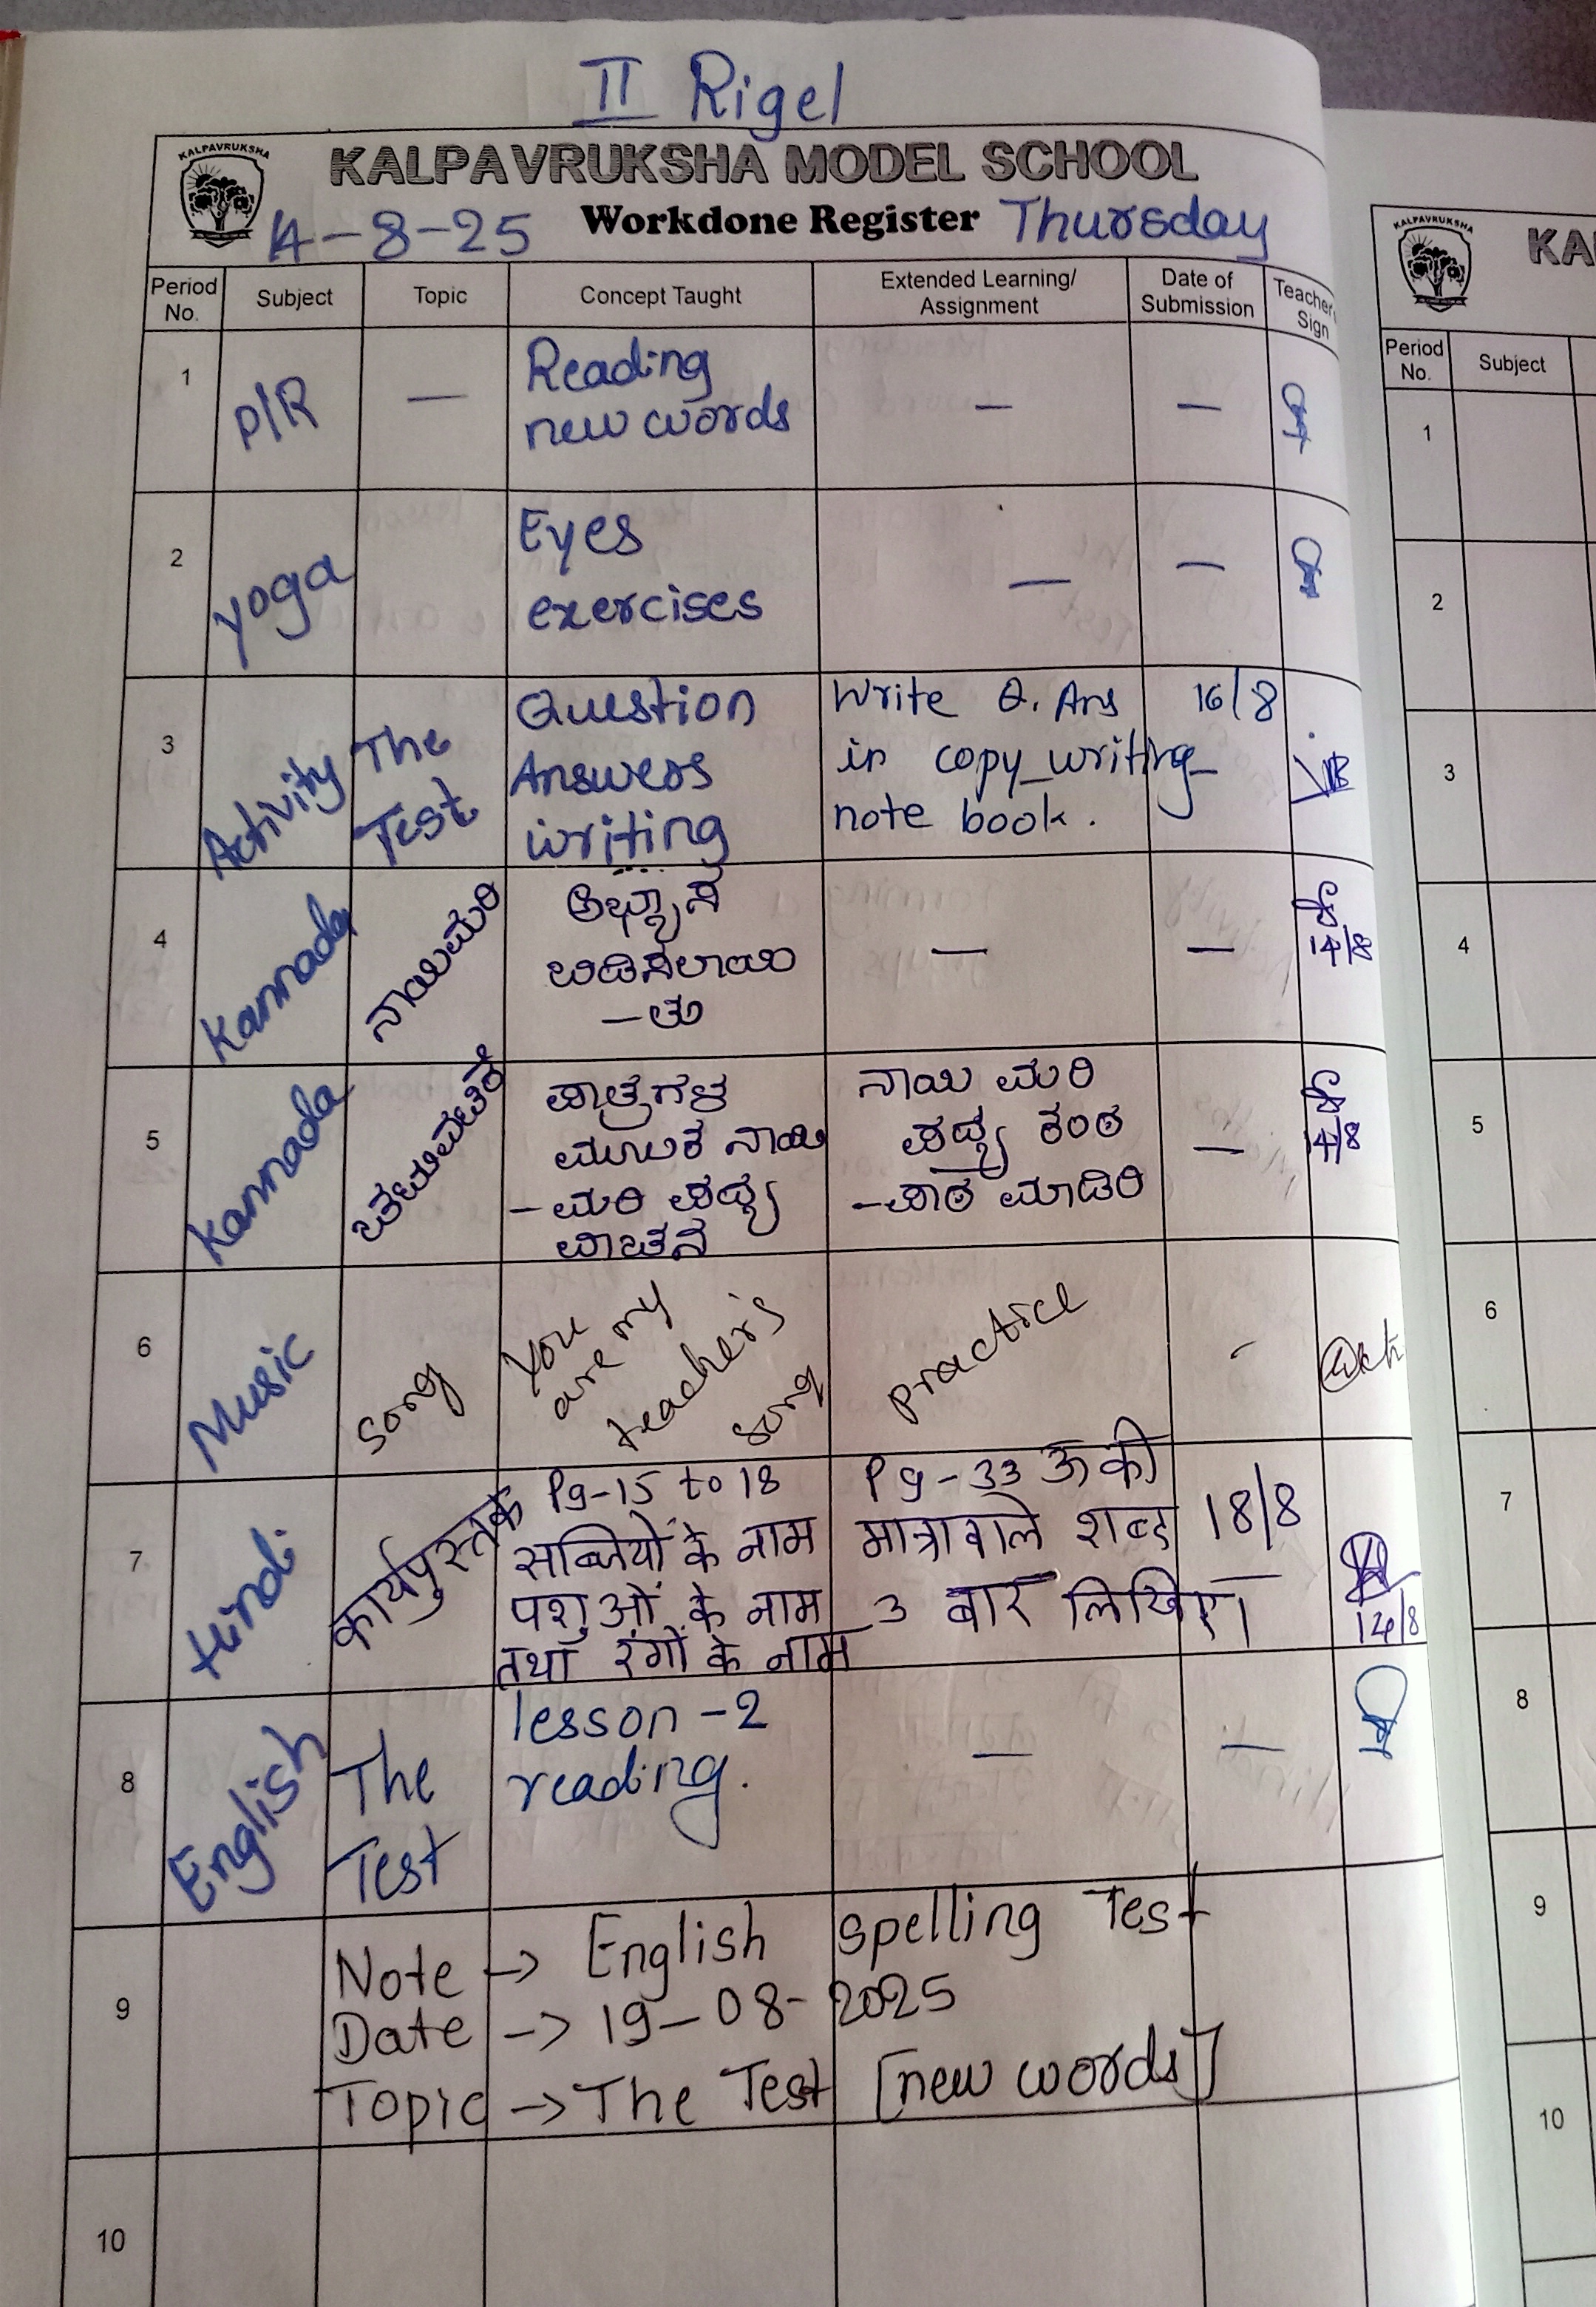 II Rigel
KALPAVRUKSHA
KALPAVRUKSHA MODEL SCHOOL
14-8-25 Workdone Register Thursday
Period No. Subject Topic Concept Taught Extended Learning/ Assignment Date of Submission Teacher Sign
1 P/R — Reading — —
new words
2 Yoga Eyes — —
exercises
3 Activity The Question Write Q. Ans 16/8
Test Answers in copy_writing
writing note book.
4 Kannada ನಾಯಿಮರಿ ಅಭ್ಯಾಸ — — 14/8
ಬಿಡಿಸಲಾಯಿ
-ತು
5 Kannada ಚಟುವಟಿಕೆ ಪಾತ್ರಗಳ ನಾಯಿ ಮರಿ — 14/8
ಮೂಲಕ ನಾಯಿ ಪದ್ಯ ಕಂಠ
-ಮರಿ ಪದ್ಯ -ಪಾಠ ಮಾಡಿರಿ
ವಾಚನ
6 Music song You are my teacher's song practice -
7 Hindi कार्यपुस्तक Pg-15 to 18 Pg-33 ऊ की 18/8
सब्जियों के नाम मात्रावाले शब्द
पशुओं के नाम 3 बार लिखिए। 14/8
तथा रंगों के नाम
8 English The lesson-2 — —
Test reading.
9 Note -> English Spelling Test
Date -> 19-08-2025
Topic -> The Test [new words]
10
KALPAVRUKSHA
KA
Period No. Subject
1
2
3
4
5
6
7
8
9
10